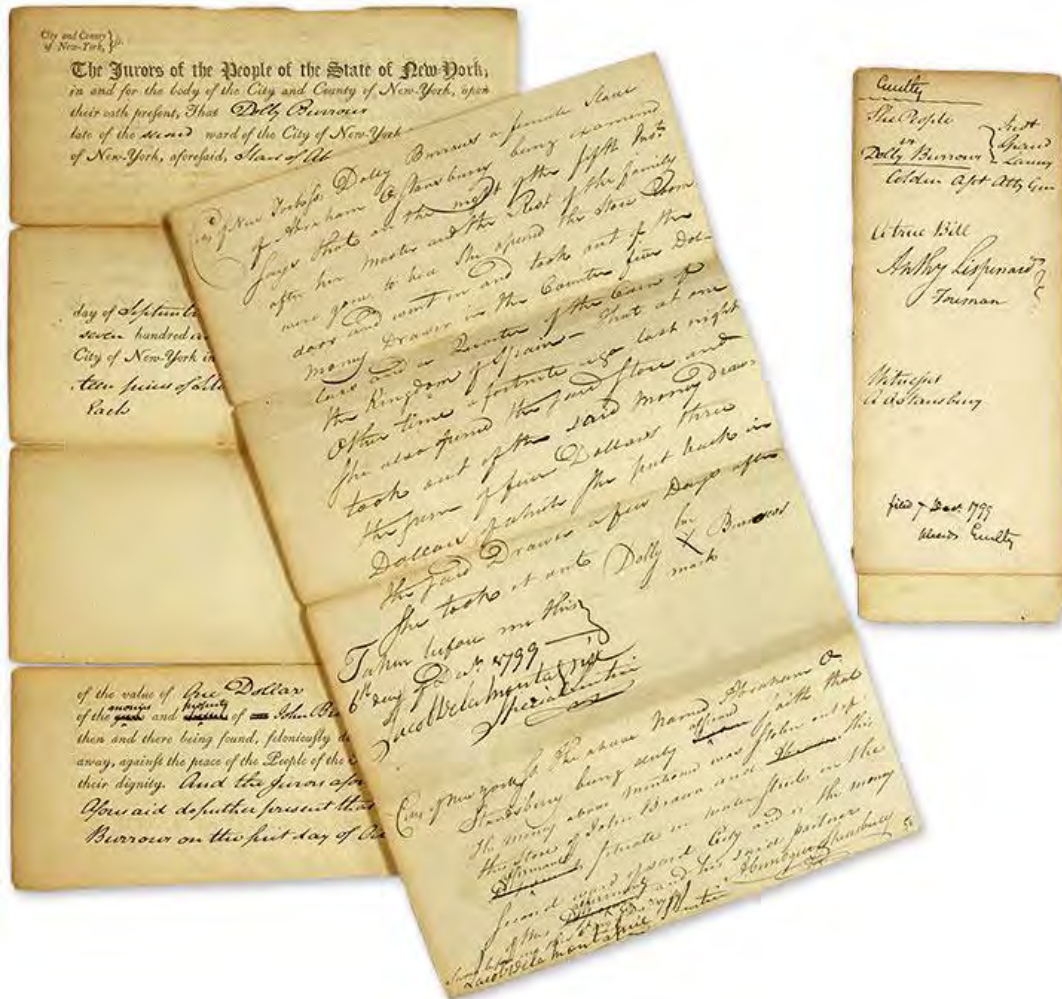 City and County
of New-York, } ss.
The Jurors of the People of the State of New-York,
in and for the body of the City and County of New-York, upon
their oath present, That Dolly Burrows
late of the second ward of the City of New-York
of New-York, aforesaid,
day of Septemb
seven hundred a
City of New-York in
teen pieces of
Each
of the value of One Dollar
monies property
of the and of John Br
then and there being found, feloniously d
away, against the peace of the People of the
their dignity. And the Jurors afore
Aforesaid do further present that
Burrow on the first day of
City of New York ss. Dolly Burrows a female Slave
of Abraham O Stansbury being examined
Says that on the night of the fifth Inst.
after her Master and the Rest of the family
were gone to bed She opened the Store Room
door and went in and took out of the
money Drawer in the Counter five Dol-
lars and a Quarter of the Coin of
the Kingdom of Spain - That at one
Other time a fortnite ago last night
She also opened the said Store and
took out of the said money drawer
the sum of four Dollars three
Dollars of which She put back in
the said Drawer a few Days after
She took it out Dolly X Burrows
her
mark
Taken before me this
6th day of Decr. 1799
Jacob Delamontagnie
Special Justice
City of New York ss The above Named Abraham O
Stansbury being duly affirmed saith that
the money above mentioned was Stolen out of
the Store of John Brown and this
Affirmant Situate in water Street in the
Second ward of said City and is the money
of this Affirmant and his said partner
Abraham O Stansbury
Jacob Delamontagnie
Guilty
The People
vs
Dolly Burrows
Grand
Larceny
Colden Asst Atty Gen
A true Bill
Anthy Lispenard
Foreman
Witness
A O Stansbury
filed 7 Decr. 1799
Guilty